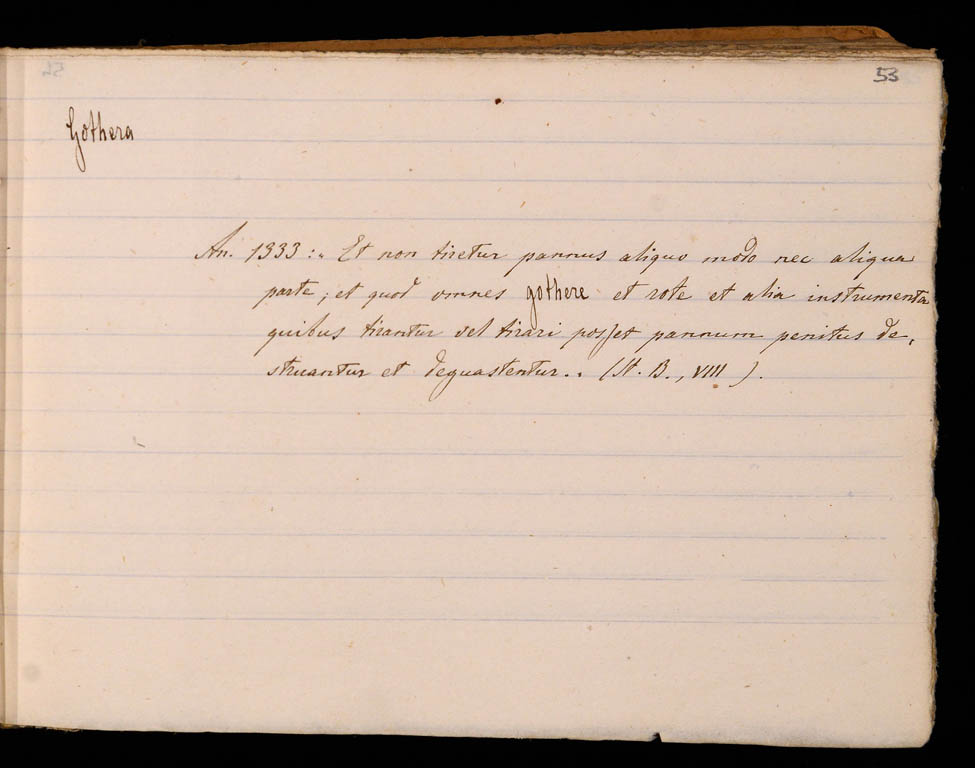 53
Gothera
An. 1333 :. Et non tiretur pannus aliquo modo nec aliqua
parte; et quod omnes gothere et rote et alia instrumenta
quibus tirantur vel tirari posset pannum penitus de,
struantur et deguastentur.. (St. B., VIII ).